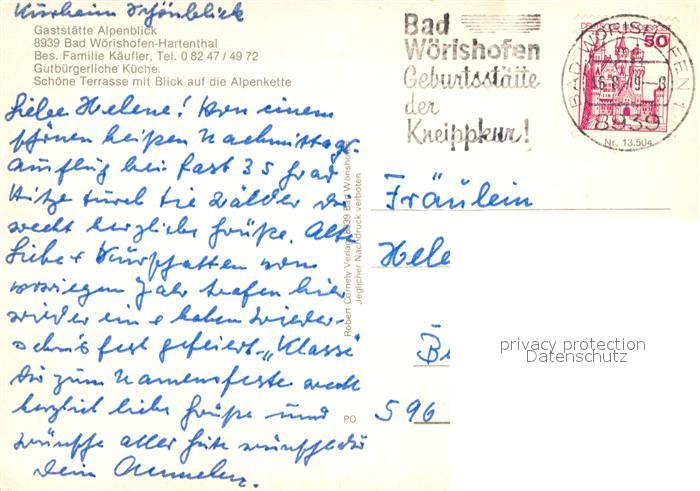 Kurheim Schönblick
Gaststätte Alpenblick
8939 Bad Wörishofen-Hartenthal
Bes. Familie Käufler, Tel. 0 82 47 / 49 72
Gutbürgerliche Küche.
Schöne Terrasse mit Blick auf die Alpenkette
Liebe Helene! Von einem
schönen heißen Nachmittags-
ausflug bei fast 35 Grad
Hitze durch die Wälder dir
recht herzliche Grüße. Alte
Liebe + Kurschatten vom
vorigen Jahr trafen hier
wieder ein + haben Wieder-
sehnsfest gefeiert. „Klasse"
Dir zum Namensfeste recht
herzlich liebe Grüße und
wünsche alles Gute wünscht dir
Dein
Robert Cornely Verlag 8939 Bad Wörishofen
Jeglicher Nachdruck verboten
PO
Bad
Wörishofen
Geburtsstätte
der
Kneippkur!
50
BAD WÖRISHOFEN 1
8939
Nr. 13.504
Fräulein
Hele
596
privacy protection
Datenschutz